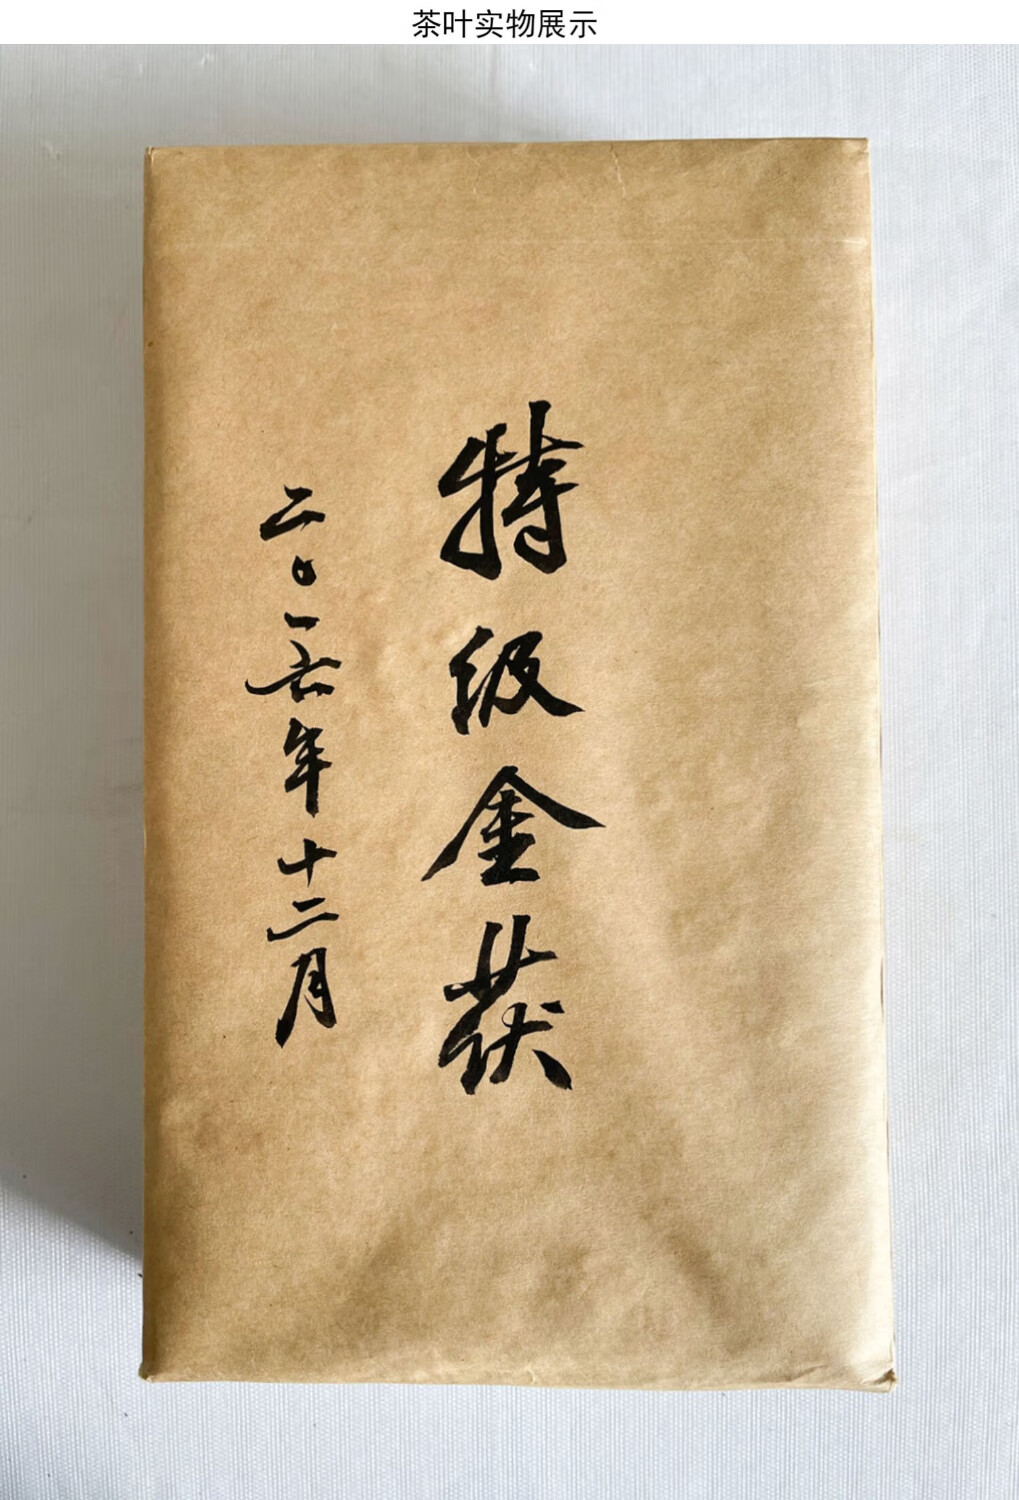 茶叶实物展示
特级金茯
二〇一六年十二月